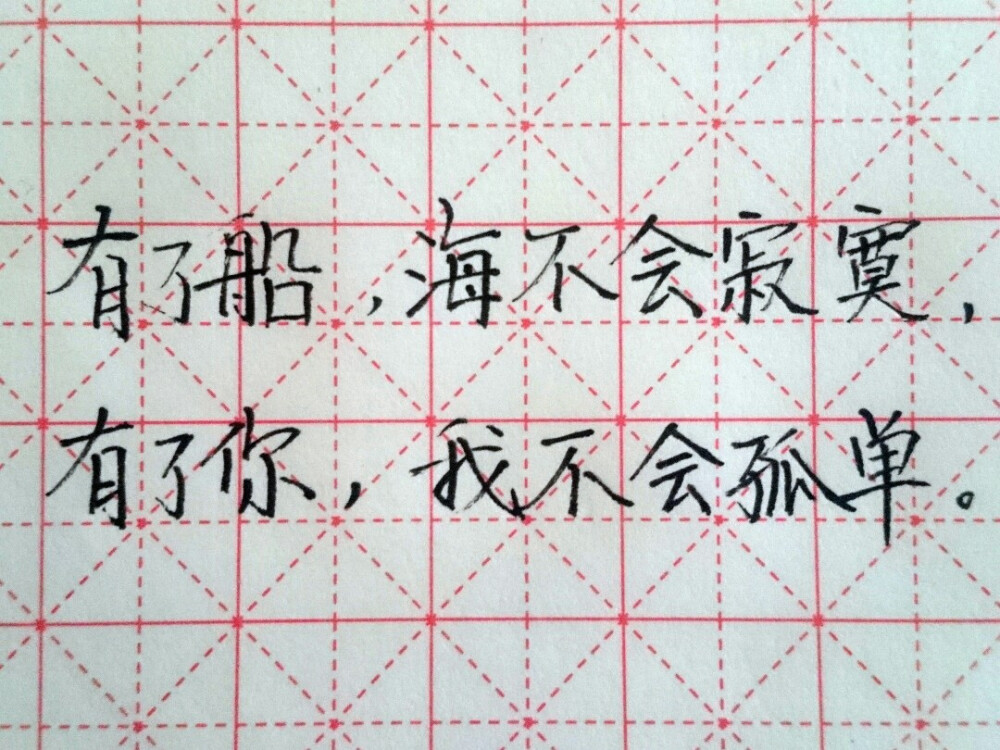 有了船，海不会寂寞，
有了你，我不会孤单。